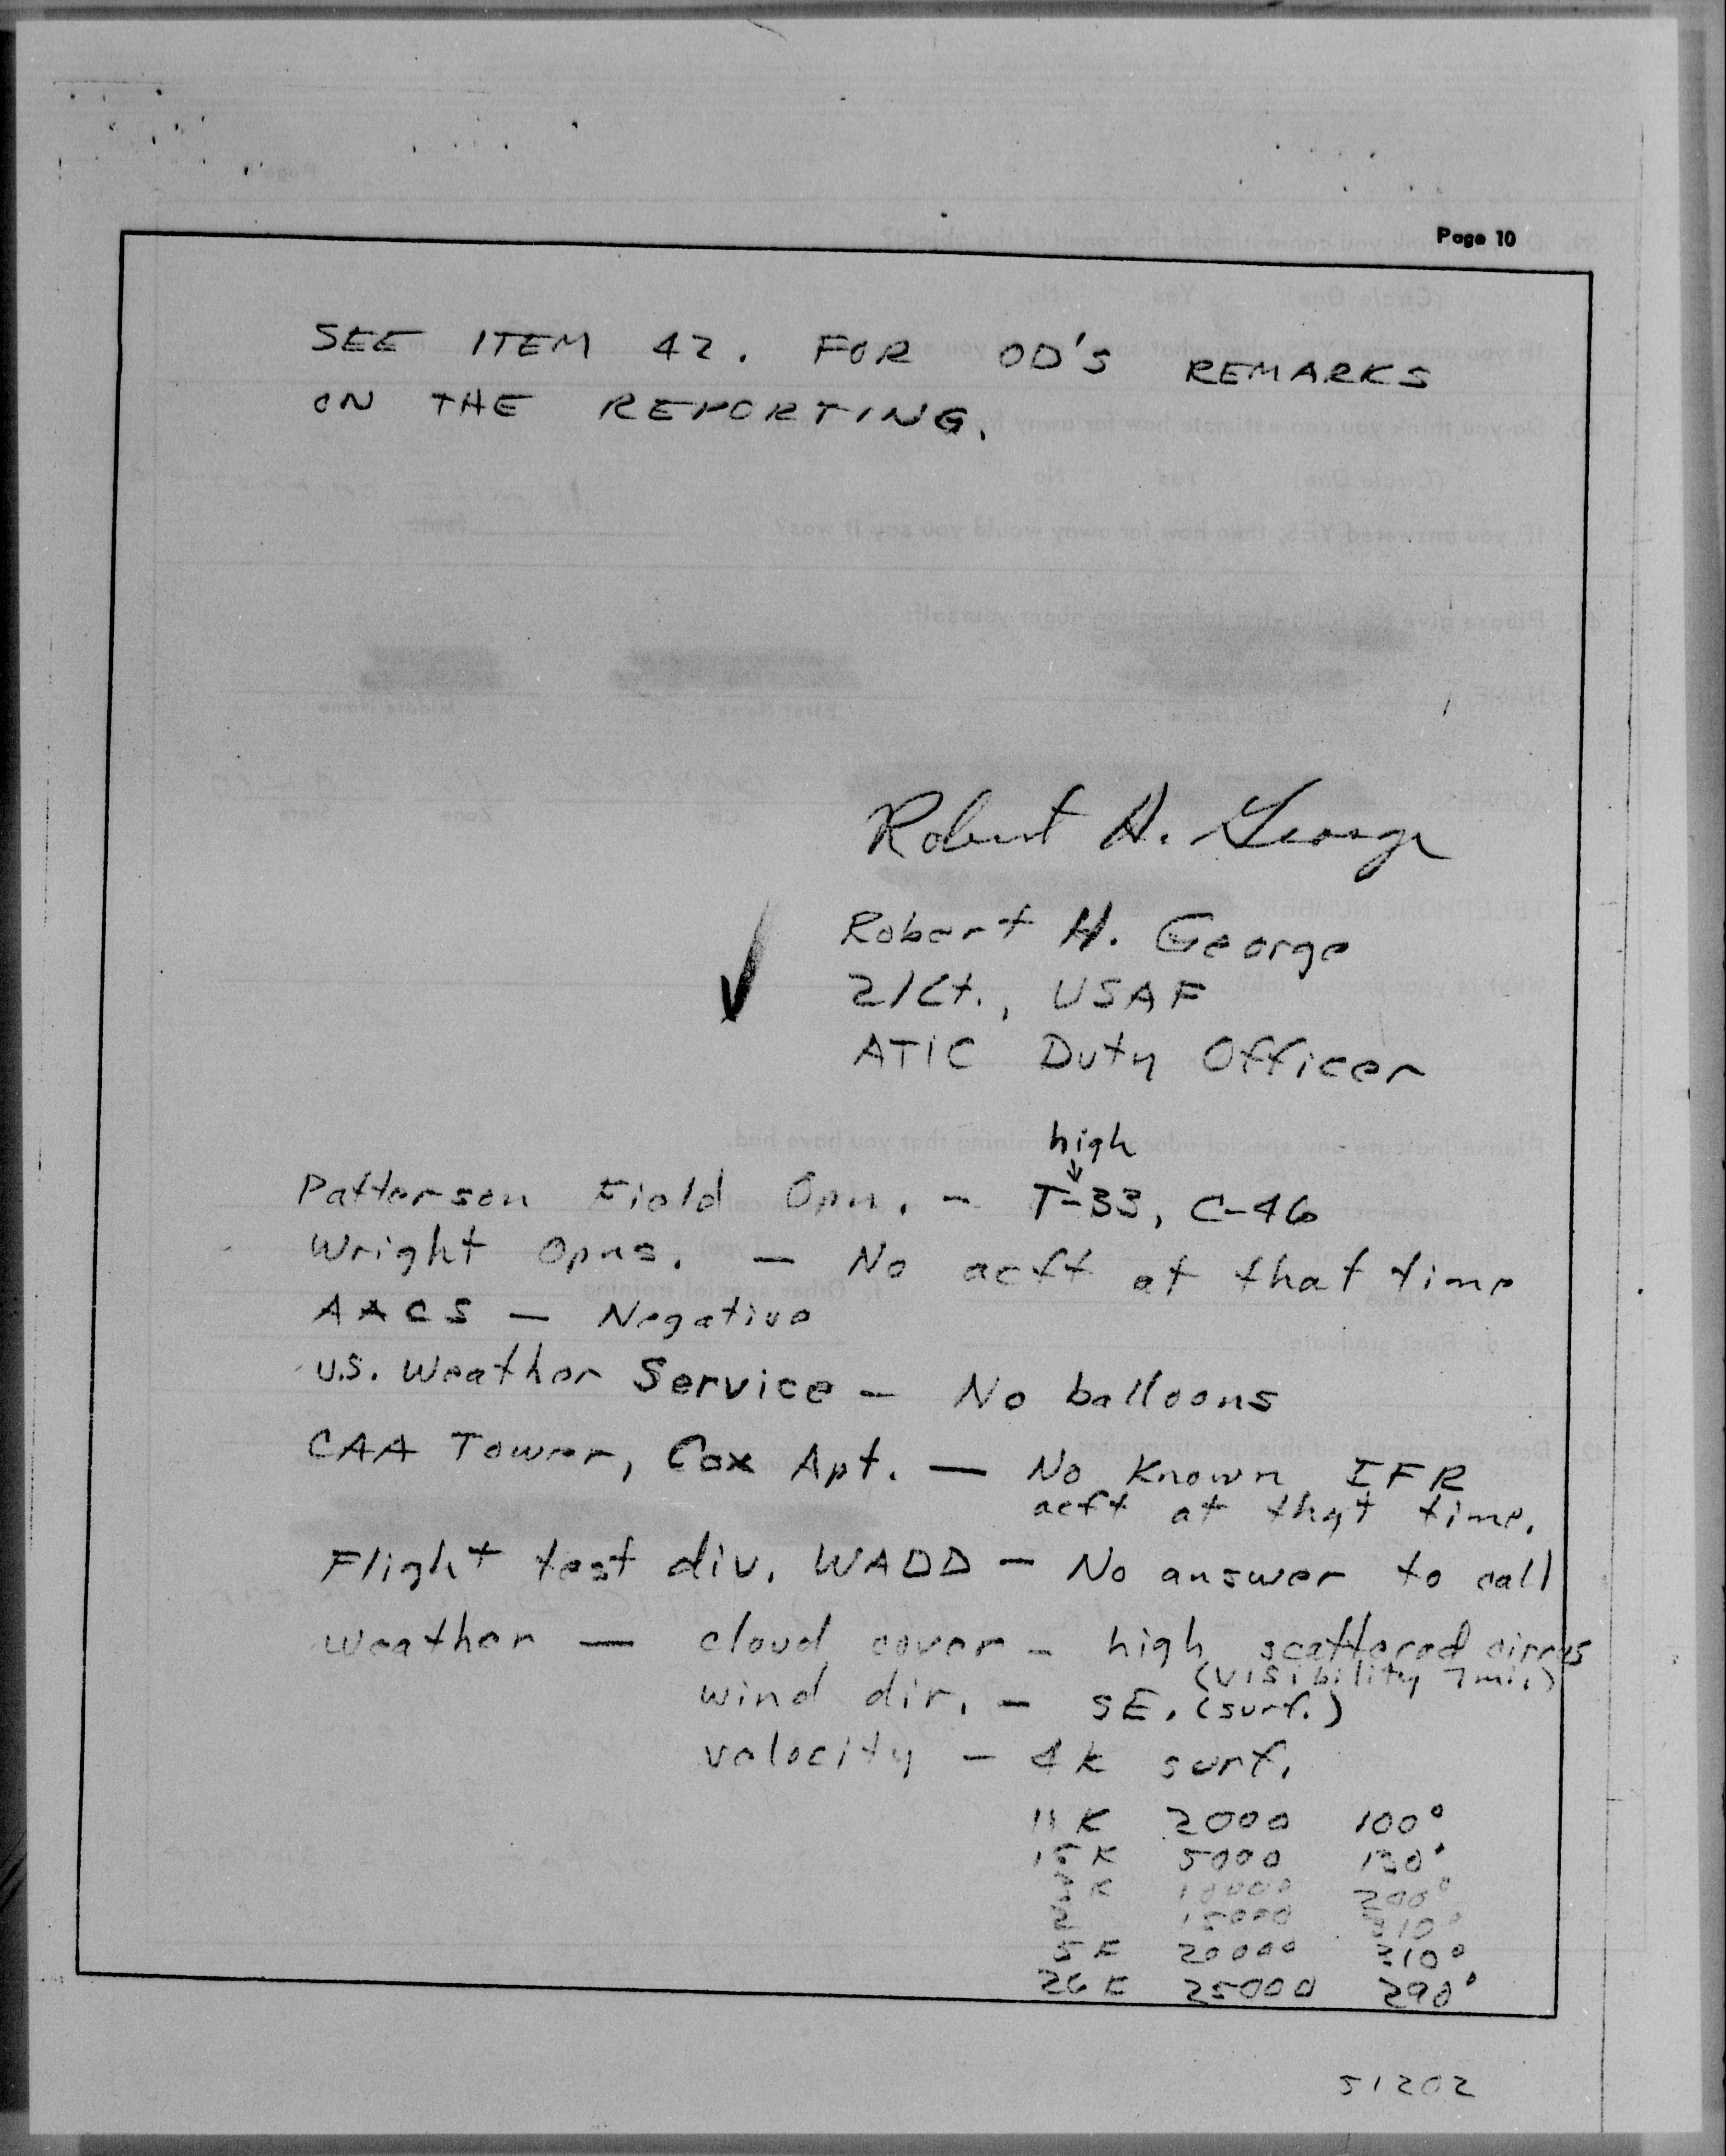 Page 10
SEE ITEM 42. FOR OD'S REMARKS
ON THE REPORTING.
Robert H. George
Robert H. George
2/Lt., USAF
ATIC Duty Officer
high
↓
Patterson Field Opn. - T-33, C-46
Wright Opns. - No acft at that time
AACS - Negative
U.S. Weather Service - No balloons
CAA Tower, Cox Apt. - No Known IFR
acft at that time.
Flight test div. WADD - No answer to call
Weather - cloud cover - high scattered cirrus
(visibility 7mi.)
wind dir. - SE. (surf.)
velocity - 4k surf.
11 K 2000 100°
15 K 5000 130°
K 10000 200°
15000
5 K 20000 310°
26 K 25000 290°
51202